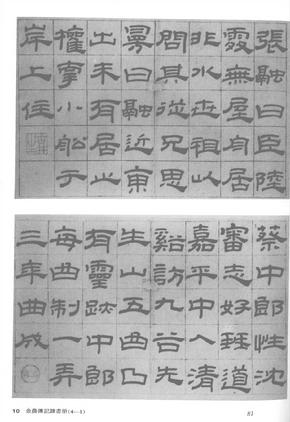 張融曰臣陸
處無屋舟居
非水世祖以
問其從兄思
曼曰融近東
出未有居止
權牽小舩于
岸上住
蔡中郎性沈
審志好琴道
嘉平中入清
谿訪九谷先
生山五曲曲
有靈跡中郎
每曲制一弄
三年曲成
10 金農傳記隸書册(4—1)
81